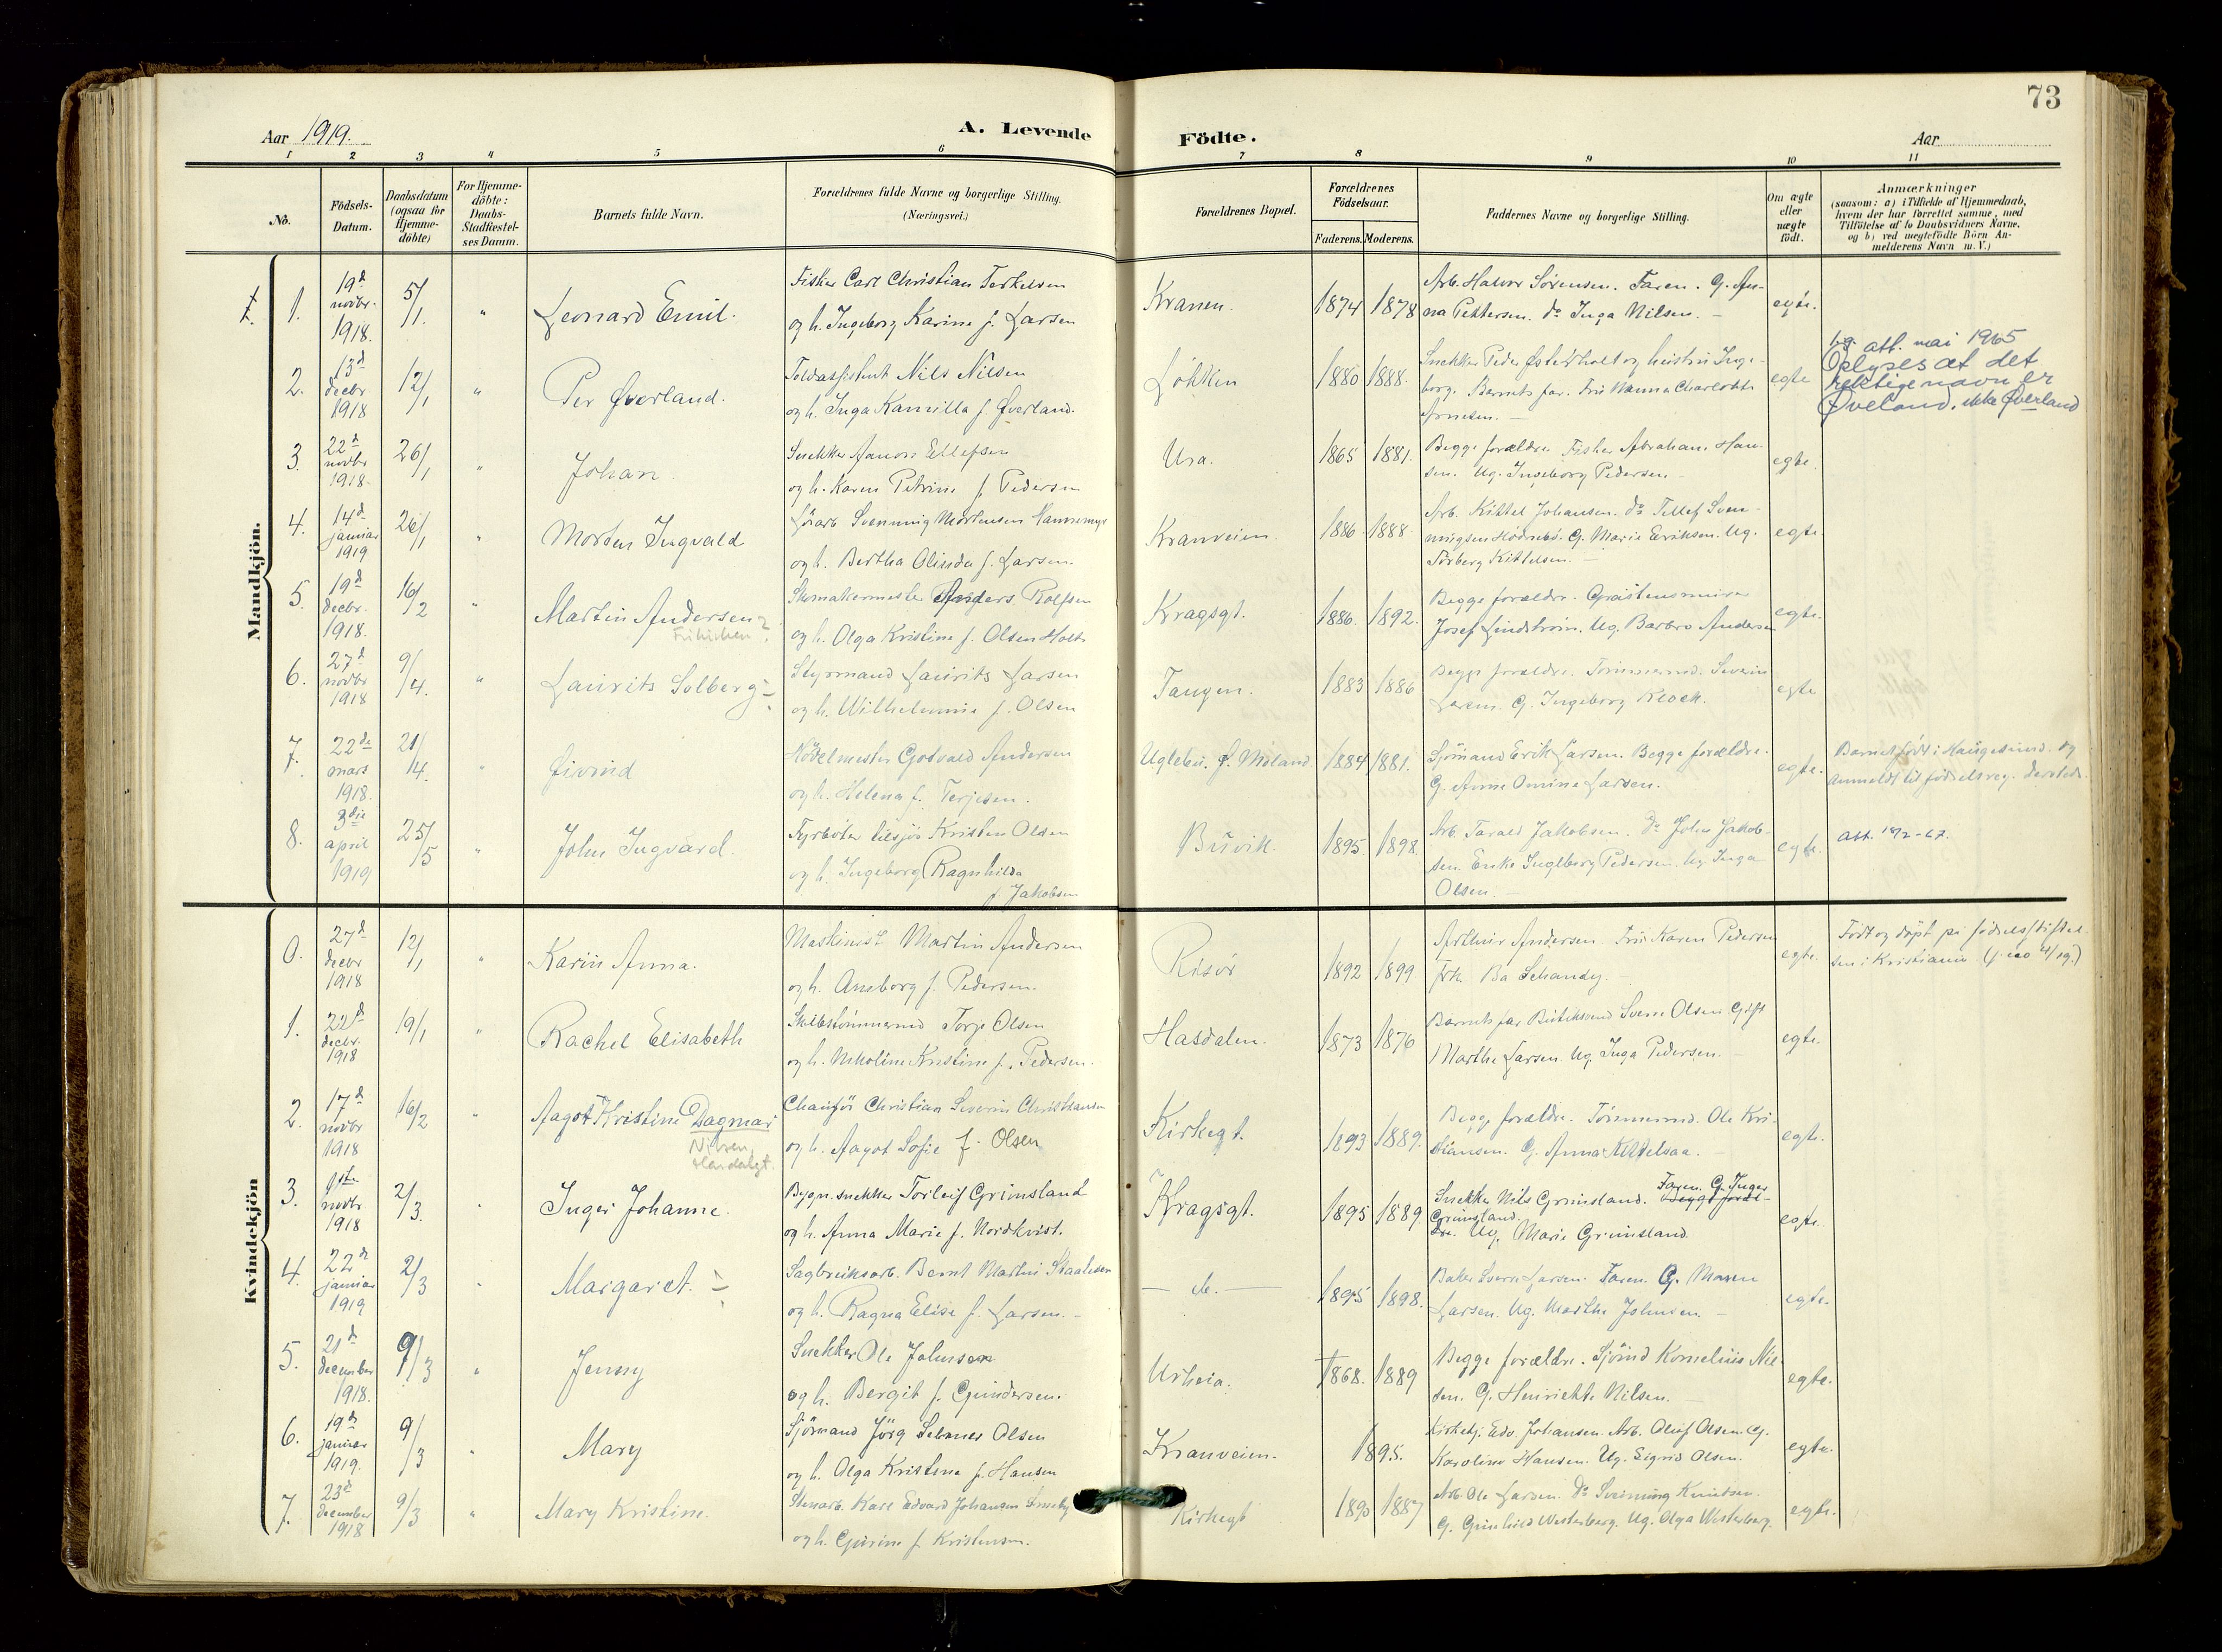 73
Aar 1919.
A. Levende Födte.
Aar
1 2 3 4 5 6 7 8 9 10 11
No.
Födsels-
Datum.
Daabsdatum
(ogsaa for
Hjemme-
döbte)
For Hjemme-
döbte:
Daabs-
Stadfæstel-
ses Datum.
Barnets fulde Navn.
Forældrenes fulde Navne og borgerlige Stilling.
(Næringsvei.)
Forældrenes Bopæl.
Forældrenes
Födselsaar.
Faderens. Moderens.
Faddernes Navne og borgerlige Stilling.
Om ægte
eller
uægte
født.
Anmærkninger
(saasom: a) i Tilfælde af Hjemmedaab,
hvem der har forrettet samme, med
Tilföielse af to Daabsvidners Navne.
og b) ved uægtefödte Börn An-
melderens Navn m. V.)
Mandkjön.
1.
19d
novbr.
1918.
5/1.
"
Leonard Emil.
Fisker Carl Christian Terkelsen
og h. Ingeborg Karine f. Larsen
Kranen.
1874 1878
Arb. Halvor Sörensen. Faren. G. An-
na Pettersen. do Inga Nilsen.
egte.
2.
13d
decbr
1918
12/1
"
Per Øverland.
Toldassistent Nils Nilsen
og h. Inga Kamilla f. Øverland.
1880 1888.
Snekker Peder Østerholt og hustru Inge-
borg. Barnets far. Fru Hanna Charlotte
Arnesen.
egte
att. mai 1965
Oplyses at det
rektige navn er
Øveland, ikke Øverland
3.
22d
novbr
1918
26/1
"
Johan.
Snekker Aanon Ellefsen
og h. Karen Petrine f. Pedersen
Ura.
1865 1881.
Begge forældre. Fisker Abraham Han-
sen. Ug. Ingeborg Pedersen.
egte.
4.
14d
januar
1919
26/1
"
Morten Ingvald
Svenning Mortensen Hammermyr
og h. Bertha Olinda f. Larsen.
Kranveien
1886 1888.
Arb. Kittel Johansen. do Tellef Sven-
ningsen Hödnebö. G. Marie Eriksen. Ug.
Torberg Kittelsen.
egte.
5.
19d
decbr.
1918.
16/2
"
Martin Andersen
Skomakermester Anders Rolfsen
og h. Olga Kristine f. Olsen Holte
Kragsgt.
1886. 1892.
Begge forældre.
Josef Lindström. Ug. Barbro Andersen
egte.
6.
27d
novbr
1918
9/4.
"
Laurits Solberg
Styrmand Laurits Larsen
og h. Wilhelmine f. Olsen
Tangen.
1883 1886
Begge forældre. Tömmermd. Severin
Larsen. G. Ingeborg Kloch.
egte
7.
22de
mars
1918.
21/4.
"
Eivind
Hövelmester Godvald Andersen
og h. Helena f. Terjesen.
Uglebu. Ø. Moland.
1884 1881.
Sjömand Erik Larsen. Begge forældre.
G. Anne Omine Larsen.
egte.
Barnet født i Haugesund. og
Anmeldt til fødselsreg. dersteds.
8.
3die
april
1919
25/5
"
John Ingvard.
Fyrböter tilsjös Kristen Olsen
og h. Ingeborg Ragnhilda
f. Jakobsen
Buvik.
1895. 1898.
Arb. Tarald Jakobsen. do John Jakob-
sen. Enke Ingeborg Pedersen. Ug. Inga
Olsen.
egte.
Att. 18/2-67.
Kvindekjön
0.
27d
decbr
1918
12/1
"
Karin Anna.
Maskinist Martin Andersen
og h. Anneborg f. Pedersen.
Risör
1892 1899
Arthur Andersen. Fru Karen Pedersen
Frk. Schandy.
egte.
Født og döpt på fødselsstiftel-
sen i Kristiania
1.
22d
decbr.
1918
19/1
"
Rachel Elisabeth
Skibstömmermd Torje Olsen
og h. Nikoline Kristine f. Pedersen.
Hasdalen.
1873 1876
Barnets far Olsen Gift
Marthe Larsen Ug. Inga Pedersen.
egte.
2.
17d
novbr
1918
16/2
"
Aagot Kristine Dagmar
Nilsen
Chauför Christian Severin Christiansen
og h. Aagot Sofie f. Olsen
Kirkegt.
1893 1889.
Begge forældre. Tömmermd. Ole Kri-
stiansen. G. Anna Kittelsaa.
egte.
3.
1ste
novbr
1918
2/3.
"
Inger Johanne.
Bygn.snekker Torleif Grimsland
og h. Anna Marie f. Nordkvist.
Kragsgt.
1895 1889
Snekker Nils Grimsland. Faren. G. Inger
Grimsland
Ug. Marie Grimsland
egte.
4.
22de
januar
1919
2/3
"
Margaret.
Sagbruksarb. Bernt Martin Skaalesen
og h. Ragna Elise f. Larsen.
— do. —
1895 1898.
Baker Sverre Larsen. Faren. G. Maren
Larsen. Ug. Marthe Johnsen.
egte.
5.
21de
december
1918.
9/3
"
Jenny
Snekker Ole Johnsen
og h. Bergit f. Gundersen.
Urheia.
1868. 1889
Begge forældre. Sjömd Kornelius Nil-
sen. G. Henriette Nilsen.
egte.
6.
19de
januar
1919.
9/3
"
Mary
Sjömand Jörg Olsen
og h. Olga Kristine f. Hansen
Kranveien.
1895.
Kirketj. Edv. Johansen. Arb. Oluf Olsen. G.
Karoline Hansen. Ug. Sigrid Olsen.
egte.
7.
23d
december
1918
9/3
"
Mary Kristine.
Stenarb. Karl Edvard Johansen
og h. Gurine f. Kristensen.
Kirkegt
1890 1887
Arb. Ole Larsen. do Svenning Knudsen.
G. Gunhild Westerberg. Ug. Olga Westerberg.
egte.